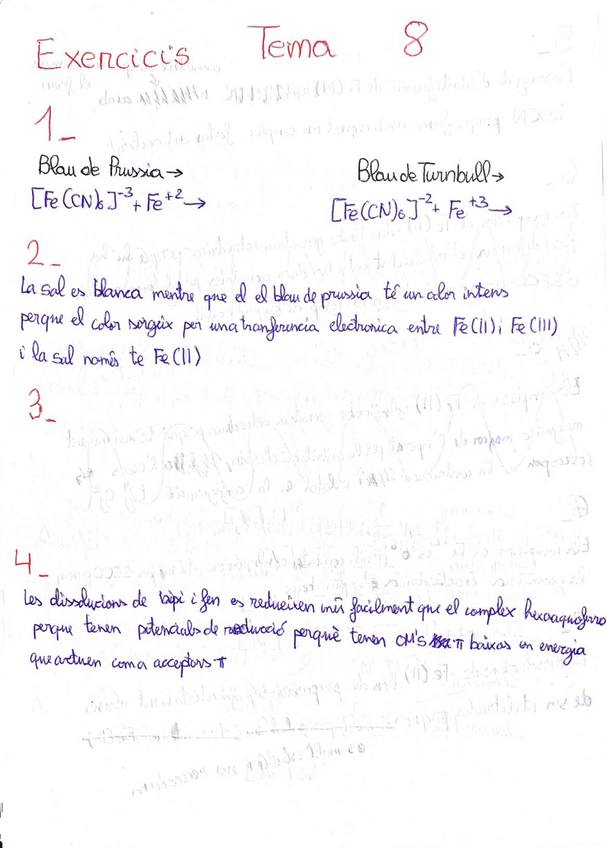 Exercicis Tema 8
1_
Blau de Prussia→ Blau de Turnbull→
[Fe(CN)6]⁻³ + Fe⁺² → [Fe(CN)6]⁻² + Fe⁺³ →
2_
La sal es blanca mentre que el el blau de prussia té un color intens
perque el color sorgeix per una tranferencia electronica entre Fe(II) i Fe(III)
i la sal només te Fe(II)
3_
4_
Les dissolucions de bipi i fen es redueixen més facilment que el complex hexaaquoferro
perque tenen potencials de reducció perquè tenen OM's π baixas en energia
que actuen com a acceptors π